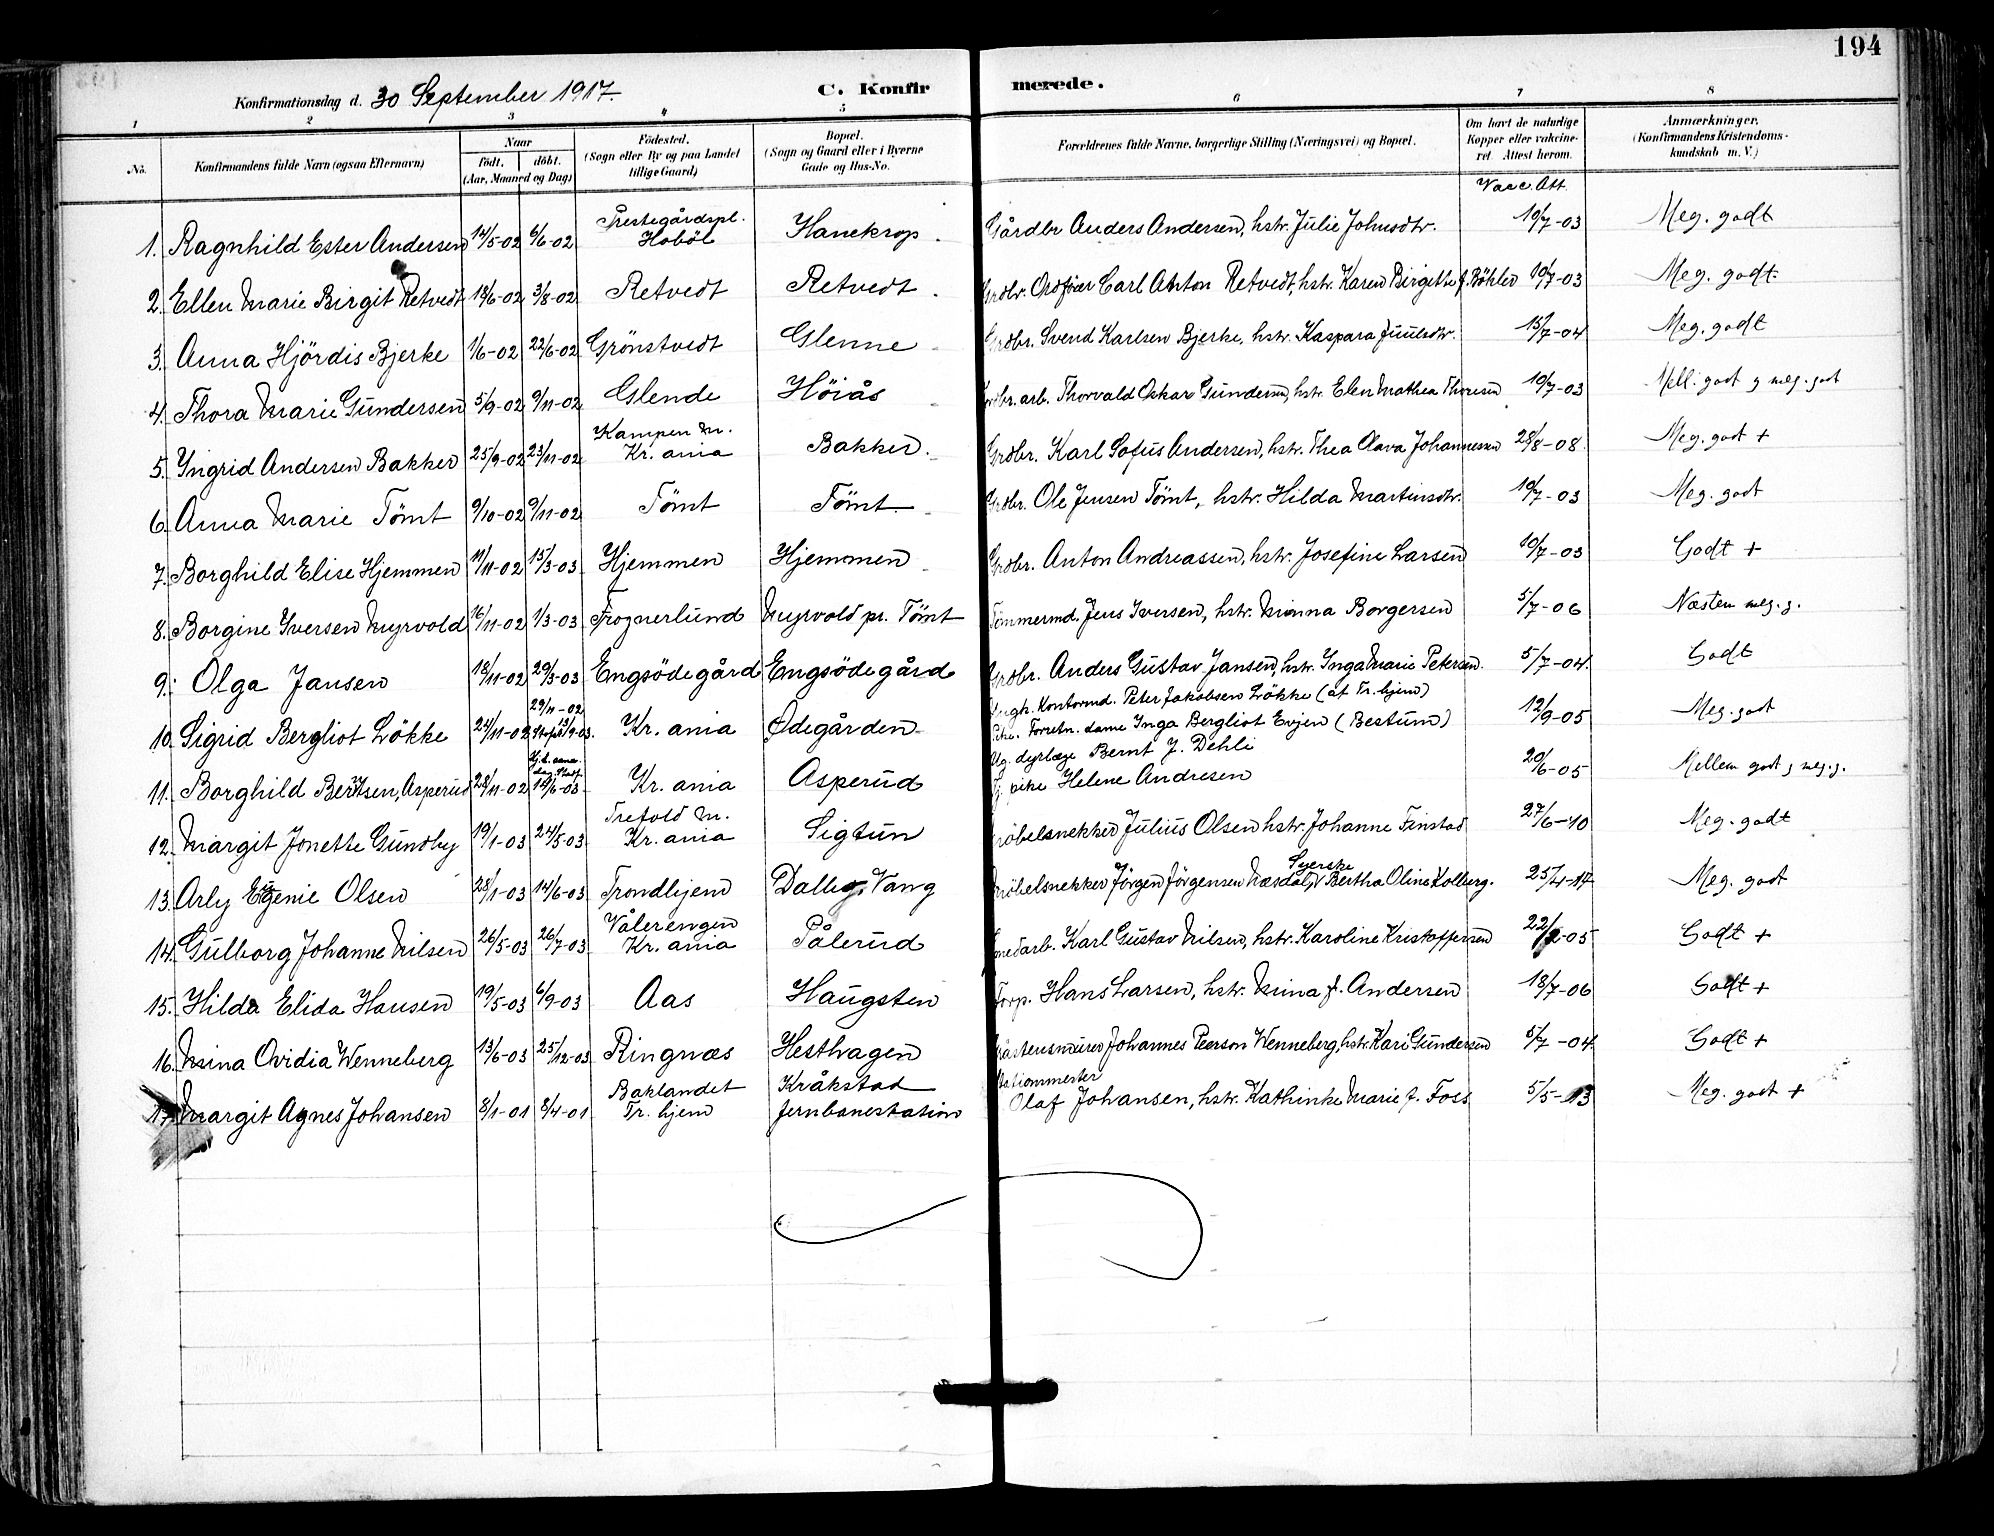 194
Konfirmationsdag d. 30 September 1917.
C. Konfir merede.
1 2 3 4 5 6 7 8
No. Konfirmandens fulde Navn (ogsaa Efternavn) Naar födt. döbt. (Aar, Maaned og Dag) Födested. (Sogn eller By og paa Landet tillige Gaard) Bopæl. (Sogn og Gaard eller i Byerne Gade og Hus-No. Forældrenes fulde Navne, borgerlige Stilling (Næringsvei) og Bopæl. Om havt de naturlige Kopper eller vakcineret. Attest herom. Anmærkninger. (Konfirmandens Kristendomskundskab m. V.)
Vacc. Att.
1. Ragnhild Ester Andersen 14/5-02 6/6-02 Prestegårdspl. Hobøl Hanekrop Gårdbr Anders Andersen, hstr. Julie Johnsdtr. 10/7-03 Meg. godt
2. Ellen Marie Birgit Retvedt 18/6-02 3/8-02 Retvedt Retvedt Grdbr. Ordfører Carl Anton Retvedt, hstr. Karen Birgitte f. Böhler 10/7-03 Meg. godt
3. Anna Hjördis Bjerke 1/6-02 22/6-02 Grönstvedt Glenne Grdbr. Svend Karlsen Bjerke, hstr. Kaspara Juulsdtr. 15/7-04 Meg. godt
4. Thora Marie Gundersen 5/9-02 9/11-02 Glende Höiås arb. Thorvald Oskar Gundersen, hstr. Elen Mathea Thoresen 10/7-03 Mell. godt g meg. godt
5. Yngrid Andersen Bakker 25/9-02 23/11-02 Kampen m. Kr. ania Bakker Grdbr. Karl Sofus Andersen, hstr. Thea Olava Johannessen 28/8-08 Meg. godt +
6. Anna Marie Tömt 9/10-02 9/11-02 Tömt Tömt Grdbr. Ole Jensen Tömt, hstr. Hilda Martinsdtr. 10/7-03 Meg. godt
7. Borghild Elise Hjemmen 11/11-02 15/3-03 Hjemmen Hjemmen Grdbr. Anton Andreassen, hstr. Josefine Larsen 10/7-03 Godt +
8. Borgine Iversen Myrvold 16/11-02 1/3-03 Frognerlund Myrvold pr. Tömt Tömmermd. Jens Iversen, hstr. Minna Borgersen 5/7-06 Næsten meg. g.
9. Olga Jansen 18/11-02 29/3-03 Engsödegård Engsödegård Grdbr. Anders Gustav Jansen, hstr. Inga Marie Petersen. 5/7-04 Godt
10. Sigrid Bergliot Lökke 24/11-02 29/11-02 Kr. ania Ödegården Kontormd. Peter Jakobsen Lökke (at Tr. hjem) Forretn. dame Inga Bergliot Evjen (Bestum) 12/9-05 Meg. godt
11. Borghild Berntsen, Asperud 28/11-02 14/6-03 Kr. ania Asperud Ug. dyrlæge Bernt J. Dehli Tj. pike Helene Andresen 20/6-05 Mellem godt g meg. g.
12. Margit Jonette Gundby 19/1-03 24/5-03 Trefold m. Kr. ania Sigtun Möbelsnekker Julius Olsen hstr. Johanne Finstad 27/6-10 Meg. godt
13. Arly Eugenie Olsen 28/1-03 14/6-03 Trondhjem Vang Möbelsnekker Jörgen Jörgensen Næsdal, Syerske Bertha Oline Kolberg. 25/4-14 Meg. godt
14. Gulborg Johanne Nilsen 26/5-03 26/7-03 Vålerengen Kr. ania Pålerud Karl Gustav Nilsen, hstr. Karoline Kristoffersen 22/2-05 Godt +
15. Hilda Elida Hansen 19/5-03 6/9-03 Aas Haugsten Hans Larsen, hstr. Mina f. Andersen 18/7-06 Godt +
16. Mina Ovidia Wenneberg 13/6-03 25/12-03 Ringnæs Hesthagen Johannes Peerson Wenneberg, hstr. Kari Gundersen 5/7-04 Godt +
17. Margit Agnes Johansen 8/1-01 8/4-01 Baklandet Tr. hjem Kråkstad Jernbanestation Stationmester Olaf Johansen, hstr. Kathinke Marie f. Foss 5/5-13 Meg. godt +